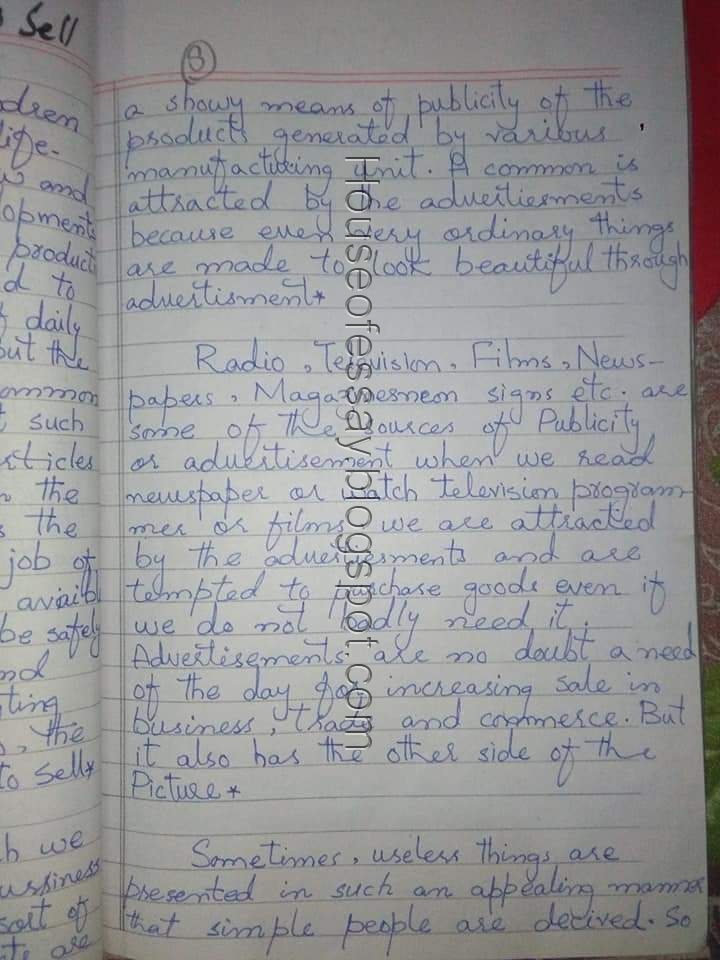 Sell
dren
life.
and
opments
product
d to
daily
out the
ommon
such
rticles
the
s the
job of
availb
be safely
nd
ting
, the
to Sell*
h we
ussiness
sort of
are
3
a showy means of publicity of the
products generated by various
manufacturing unit. A common is
attracted by the advertiesments
because even very ordinary things
are made to look beautiful through
advertisment*
Radio, Television, Films, News-
papers, Magazinesneon signs etc. are
some of the sources of Publicity
or advertisement when we read
newspaper or watch television program-
mes or films we are attracted
by the advertiesments and are
tempted to purchase goods even if
we do not badly need it.
Advertisements are no doubt a need
of the day for increasing sale in
business, trade and commerse. But
it also has the other side of the
Picture*
Sometimes, useless things are
presented in such an appealing manner
that simple people are decived. So
Houseofessay.blogspot.com